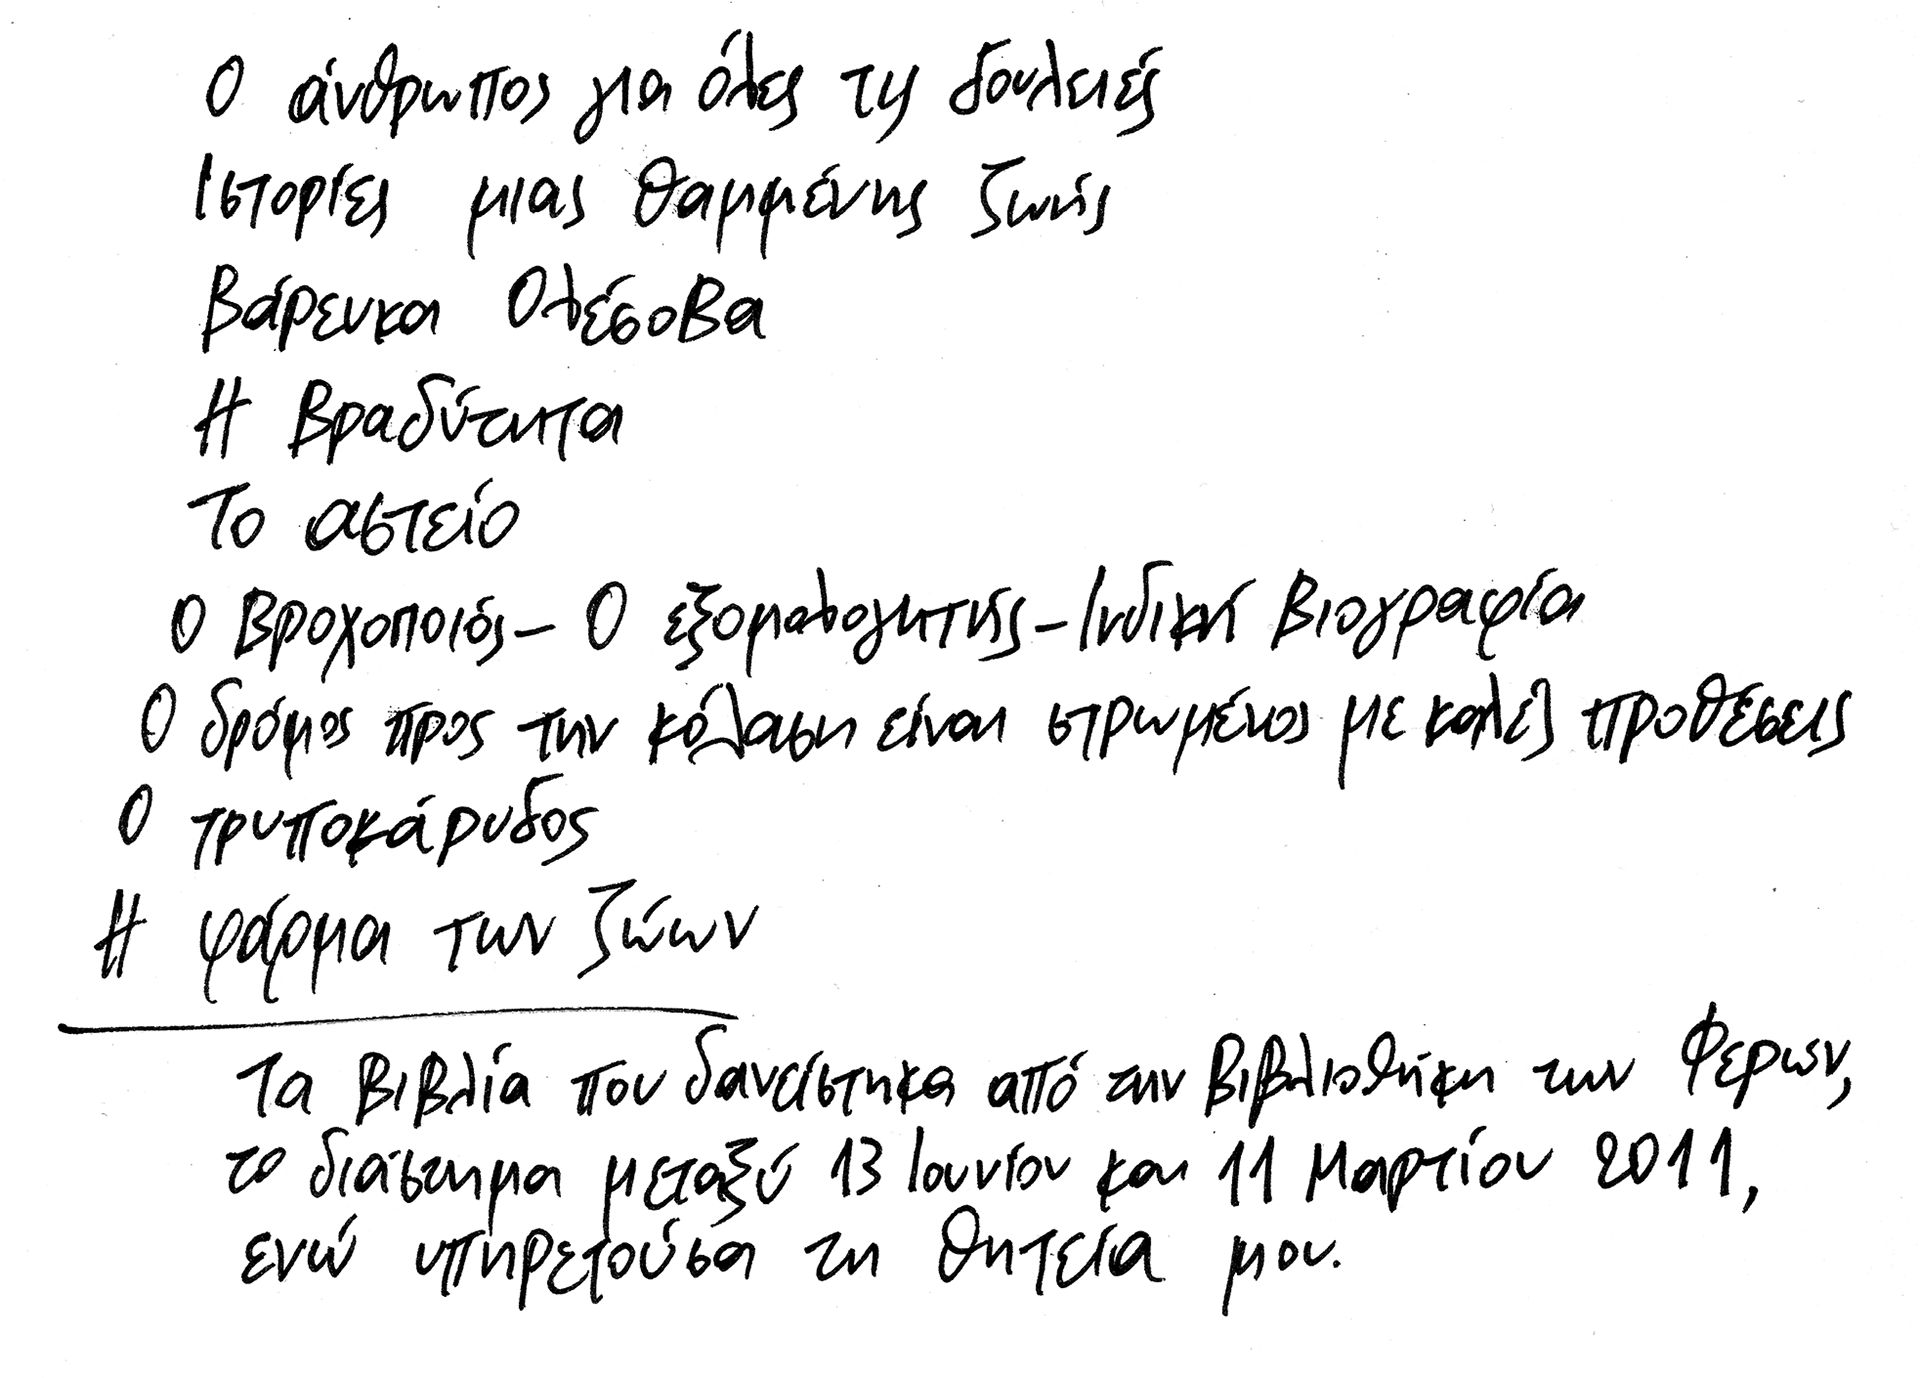 Ο άνθρωπος για όλες τις δουλειές
Ιστορίες μιας θαμμένης ζωής
Βάρενκα Ολέσοβα
Η Βραδύτητα
Το αστείο
Ο Βροχοποιός – Ο εξομολογητής – Ινδική Βιογραφία
Ο δρόμος προς την κόλαση είναι στρωμένος με καλές προθέσεις
Ο τρυποκάρυδος
Η φάρμα των ζώων
Τα βιβλία που δανείστηκα από την βιβλιοθήκη των Φερών,
το διάστημα μεταξύ 13 Ιουνίου και 11 Μαρτίου 2011,
ενώ υπηρετούσα τη θητεία μου.